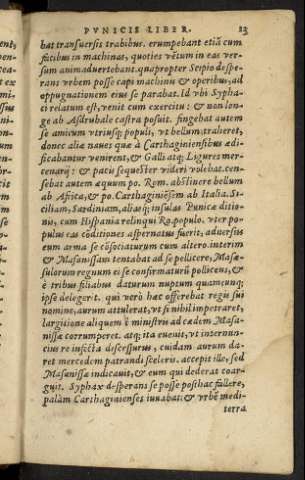 PVNICIS LIBER. 23
bat transuersis trabibus. erumpebant etiã cum
facibus in machinas, quoties vẽtum in eas ver-
sum animaduertebant. quapropter Scipio despe-
rans vrbem posse capi machinis & operibus, ad
oppugnationem eius se parabat. Id vbi Sypha-
ci relatum est, venit cum exercitu: & non lon-
ge ab Asdrubale castra posuit. fingebat autem
se amicum vtriusq; populi, vt bellum traheret,
donec aliæ naues quæ à Carthaginiensibus ædi-
ficabantur venirent, & Galli atq; Ligures mer-
cenarij: & pacis sequester videri volebat. cen-
sebat autem æquum po. Rom. abstinere bellum
ab Africa, & po. Carthaginiẽsem ab Italia. Si-
ciliam, Sardiniam, aliasq; insulas Punicæ ditio-
nis, cum Hispania relinqui Ro. populo. vter po-
pulus eas cõditiones aspernatus fuerit, aduersus
eum arma se cõsociaturum cum altero. interim
& Masanissam tentabat ad se pellicere, Masæ-
sulorum regnum ei se confirmaturũ pollicens, &
è tribus filiabus daturum nuptum quamcunq;
ipse delegerit. qui verò hæc offerebat regis sui
nomine, aurum attulerat, vt si nihil impetraret,
largitione aliquem è ministris ad cædem Masa-
nissæ corrumperet. atq; ita euenit, vt internun-
cius re infecta discessurus, cuidam aurum da-
ret mercedem patrandi sceleris. accepit ille, sed
Masanissæ indicauit, & eum qui dederat coar-
guit. Syphax desperans se posse posthac fallere,
palàm Carthaginienses iuuabat: & vrbẽ medi-
terra